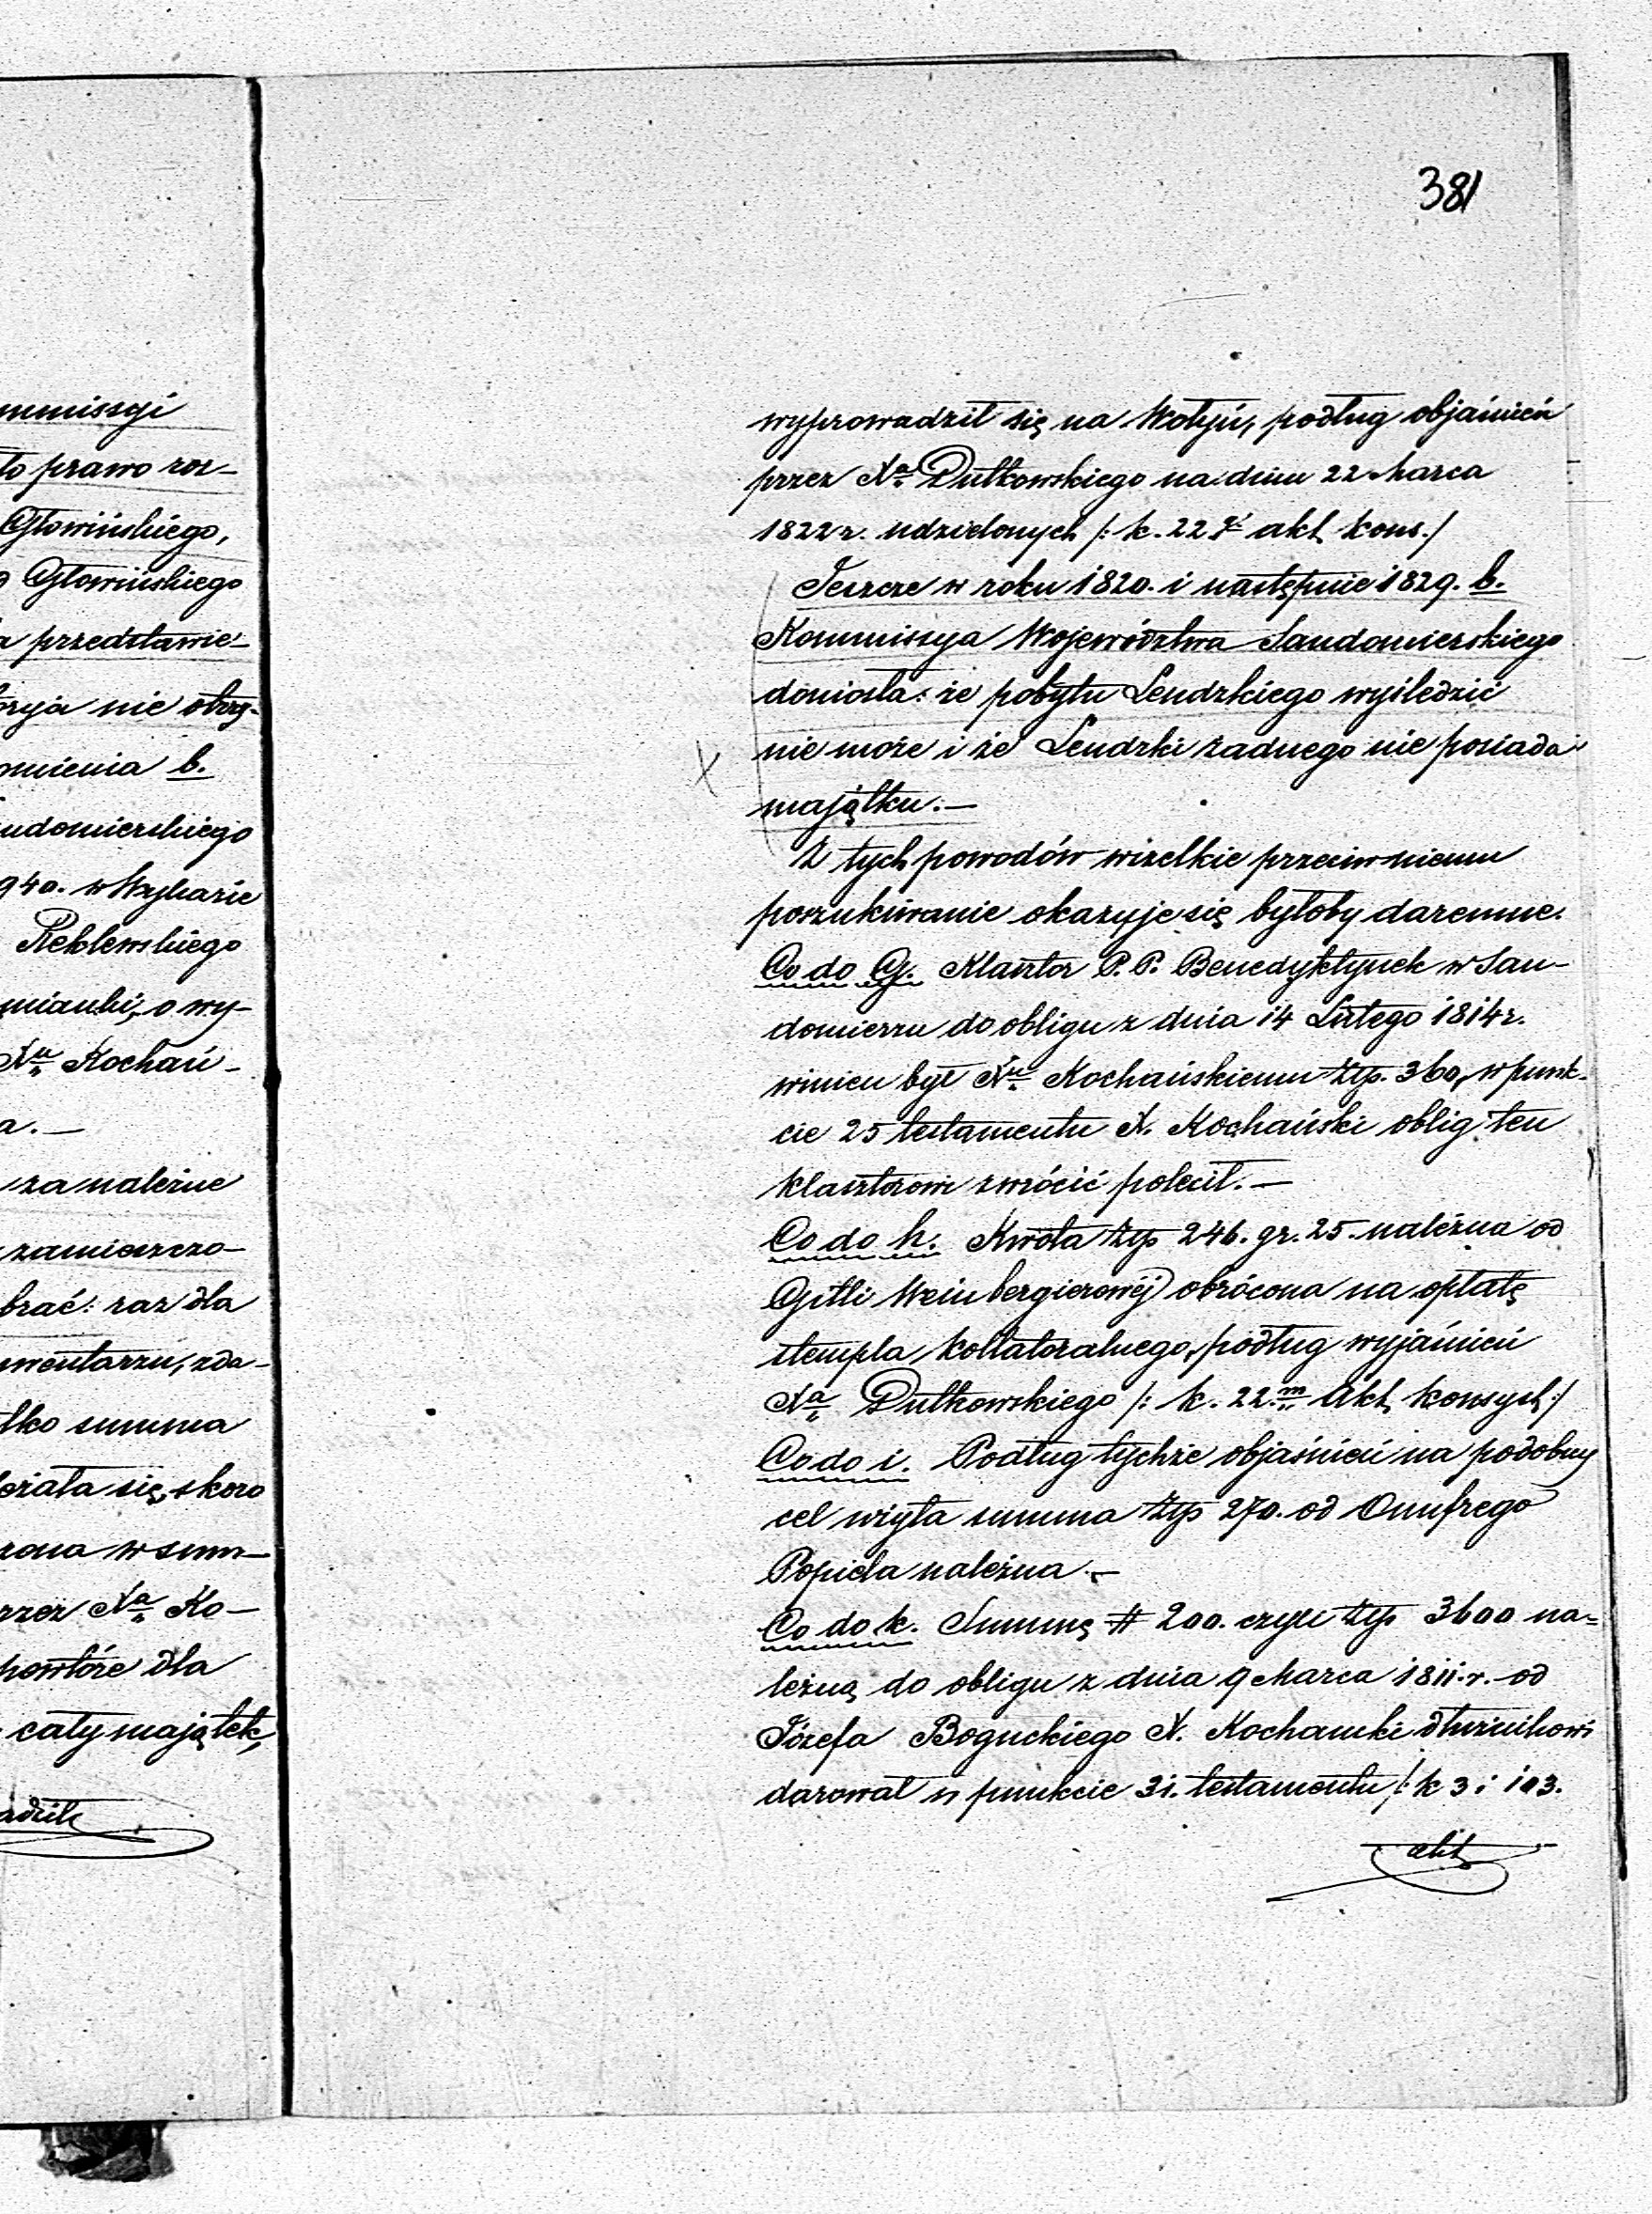 mmissyi
to prawo roz-
Głowińskiego,
Głowińskiego
a przedstawie-
nie otrzy-
omienia b.
udomierskiego
940. w Wykazie
Reklewskiego
mianki, o wy-
Xa Kochań-
a.—
za należne
zamieszczo-
brać: raz dla
nwentarzu, zda-
lko summa
eżała się, skoro
zona w sum-
rzez Xa Ko-
powtóre dla
cały majątek,
adził
381
wyprowadził się na Wołyń, podług objaśnień
przez Xa Dutkowskiego na dniu 22 Marca
1822 r. udzielonych /: k. 22 akt kons./
Jeszcze w roku 1820. i następnie 1829. b.
Kommissya Województwa Sandomierskiego
doniosła: że pobytu Lendzkiego wyśledzić
nie może i że Lendzki żadnego nie posiada
majątku.—
Z tych powodów wszelkie przeciw niemu
poszukiwanie okazyje się byłoby daremne.
Co do G. Klasztor P. P. Benedyktynek w San-
domierzu do obligu z dnia 14 Lutego 1814 r.
winien był Xu Kochańskiemu złp. 360, w punk-
cie 25 testamentu X. Kochański oblig ten
klasztorowi zwrócić polecił.—
Co do h. Kwota złp 246. gr. 25. należna od
Gitli Weinbergierowéj obrócona na opłatę
stempla kollateralnego, podług wyjaśnień
Xa Dutkowskiego /: k. 22.m akt konsych:/
Co do i. Podług tychże objaśnień na podobny
cel użyta summa złp 270. od Onufrego
Popiela należna.—
Co do k. Summę # 200. czyli złp 3600 na=
leżną do obligu z dnia 9 Marca 1811. r. od
Józefa Boguckiego X. Kochanski dłużnikowi
darował w punkcie 31. testamentu /: k 3 i 103.
akt